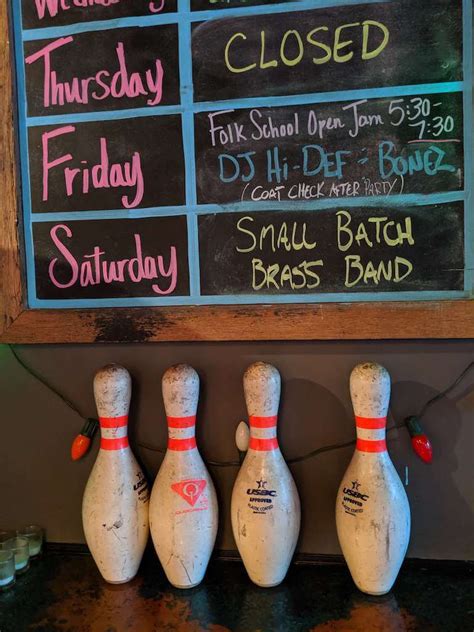 Wednesday
Thursday
CLOSED
Friday
Folk School Open Jam 5:30-
7:30
DJ Hi-Def - Bonez
(Coat Check After Party)
Saturday
Small Batch
Brass Band
USBC
APPROVED
PLASTIC COATED
USBC
APPROVED
PLASTIC COATED